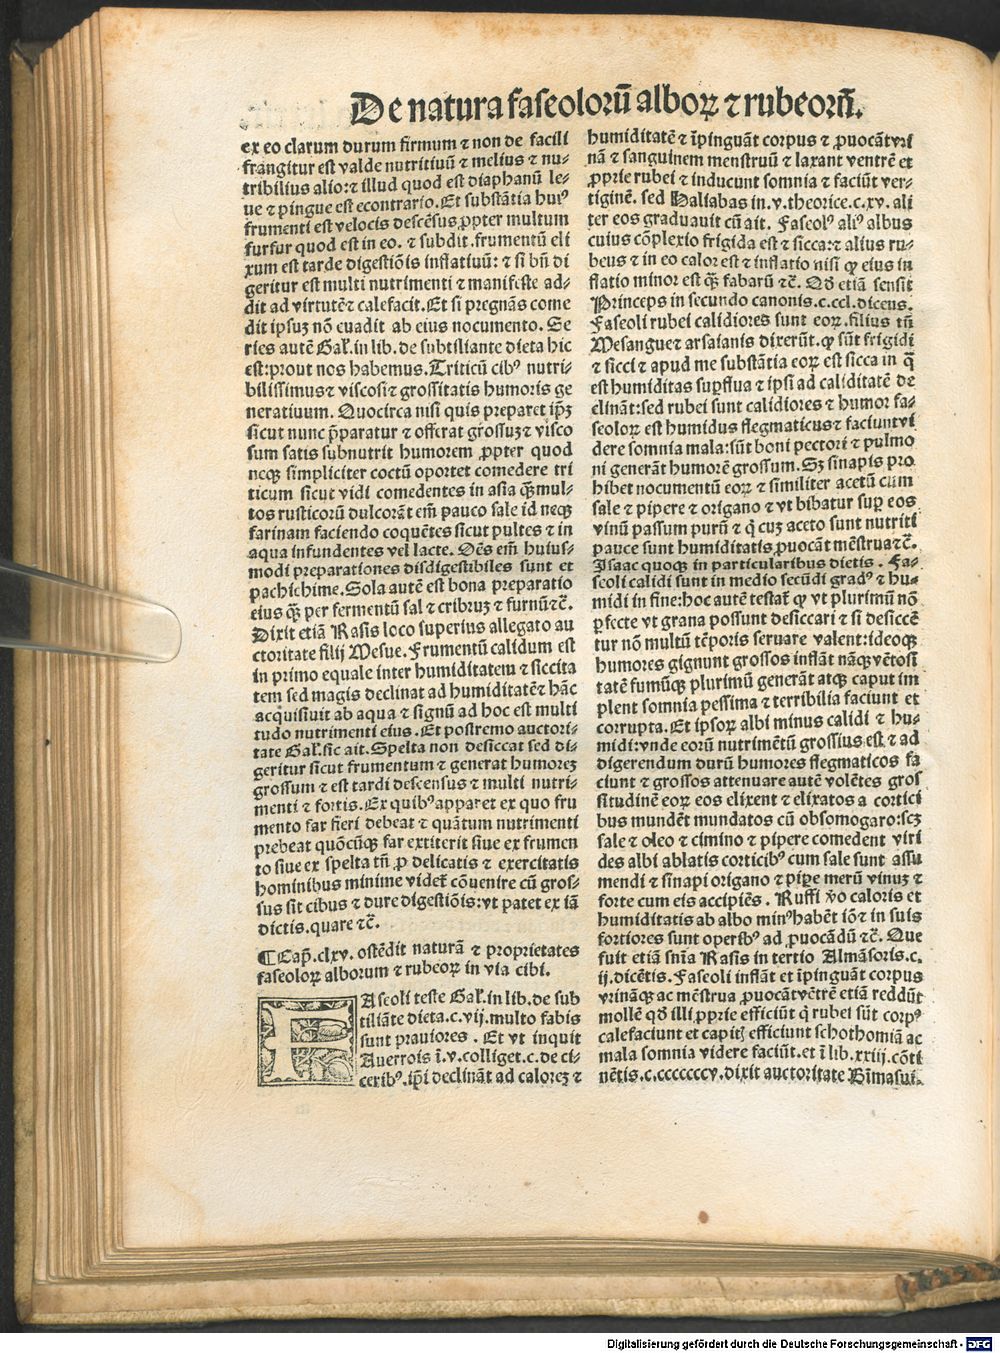 De natura faseolorū alboꝝ ⁊ rubeorū.
ex eo clarum durum firmum ⁊ non de facili
frangitur est valde nutritiuū ⁊ melius ⁊ nu-
tribilius alio: ⁊ illud quod est diaphanū le-
ue ⁊ pingue est econtrario. Et substātia huiꝰ
frumenti est velocis descēsus ꝓpter multum
furfur quod est in eo. ⁊ subdit. frumentū eli
xum est tarde digestiōis inflatiuū: ⁊ si bn̄ di
geritur est multi nutrimenti ⁊ manifeste ad-
dit ad virtutē ⁊ calefacit. Et si pregnās come
dit ipsuꝫ nō euadit ab eius nocumento. Se
ries autē Gaƚ. in lib. de subtiliante dieta hic
est: prout nos habemus. Triticū cibꝰ nutri-
bilissimus ⁊ viscosi ⁊ grossitatis humoris ge
neratiuum. Quocirca nisi quis preparet ip̄ꝫ
sicut nunc p̄paratur ⁊ offerat grossuꝫ ⁊ visco
sum satis subnutrit humorem ꝓpter quod
neqꝫ simpliciter coctū oportet comedere tri
ticum sicut vidi comedentes in asia qꝫ mul-
tos rusticorū dulcorāt em̄ pauco sale id neqꝫ
farinam faciendo coquētes sicut pultes ⁊ in
aqua infundentes vel lacte. Oēs em̄ huius-
modi preparationes disdigestibiles sunt et
pachichime. Sola autē est bona preparatio
eius qꝫ per fermentū sal ⁊ cribruꝫ ⁊ furnū ⁊c̄.
Dixit etiā Rasis loco superius allegato au
ctoritate filij Mesue. Frumentū calidum est
in primo equale inter humiditatem ⁊ siccita
tem sed magis declinat ad humiditatē ⁊ hāc
acquisiuit ab aqua ⁊ signū ad hoc est multi
tudo nutrimenti eius. Et postremo auctori-
tate Gaƚ. sic ait. Spelta non desiccat sed di-
geritur sicut frumentum ⁊ generat humoreꝫ
grossum ⁊ est tardi descensus ⁊ multi nutri-
menti ⁊ fortis. Ex quibꝰ apparet ex quo fru
mento far fieri debeat ⁊ quātum nutrimenti
prebeat quōcūqꝫ far extiterit siue ex frumen
to siue ex spelta tn̄ ꝓ delicatis ⁊ exercitatis
hominibus minime videt̄ cōuenire cū gros-
sus sit cibus ⁊ dure digestiōis: vt patet ex iā
dictis. quare ⁊c̄.
¶ Cap̄. clxv. ostēdit naturā ⁊ proprietates
faseoloꝝ alborum ⁊ rubeoꝝ in via cibi.
FAseoli teste Gaƚ. in lib. de sub
tiliāte dieta. c. vij. multo fabis
sunt prauiores. Et vt inquit
Auerrois ī. v. colliget. c. de ci-
ceribꝰ. ip̄i declināt ad caloreꝫ ⁊
humiditatē ⁊ īpinguāt corpus ⁊ ꝓuocāt vri
nā ⁊ sanguinem menstruū ⁊ laxant ventrē et
ꝓprie rubei ⁊ inducunt somnia ⁊ faciūt ver-
tiginē. sed Haliabas in. v. theorice. c. xv. ali
ter eos graduauit cū ait. Faseolꝰ aliꝰ albus
cuius cōplexio frigida est ⁊ sicca: ⁊ alius ru-
beus ⁊ in eo calor est ⁊ inflatio nisi qꝫ eius in
flatio minor est qꝫ fabarū ⁊c̄. Qd̄ etiā sensit
Princeps in secundo canonis. c. ccl. dicens.
Faseoli rubei calidiores sunt eoꝝ. filius tn̄
Mesangue ⁊ arsaianis dixerūt. qꝫ sūt frigidi
⁊ sicci ⁊ apud me substātia eoꝝ est sicca in q̄
est humiditas suꝑflua ⁊ ipsi ad caliditatē de
clināt: sed rubei sunt calidiores ⁊ humor fa-
seoloꝝ est humidus flegmaticus ⁊ faciunt vi
dere somnia mala: sūt boni pectori ⁊ pulmo
ni generāt humorē grossum. Sꝫ sinapis pro
hibet nocumentū eoꝝ ⁊ similiter acetū cum
sale ⁊ pipere ⁊ origano ⁊ vt bibatur suꝑ eos
vinū passum purū ⁊ q̇ cuꝫ aceto sunt nutriti
pauce sunt humiditatis ꝓuocāt mēstrua ⁊c̄.
Isaac quoqꝫ in particularibus dietis. Fa-
seoli calidi sunt in medio secūdi gradꝰ ⁊ hu-
midi in fine: hoc autē testat̄ qꝫ vt plurimū nō
ꝑfecte vt grana possunt desiccari ⁊ si desiccē
tur nō multū tēporis seruare valent: ideoqꝫ
humores gignunt grossos inflāt nāqꝫ vētosi
tatē fumūqꝫ plurimū generāt atqꝫ caput im
plent somnia pessima ⁊ terribilia faciunt et
corrupta. Et ipsoꝝ albi minus calidi ⁊ hu-
midi: vnde eorū nutrimētū grossius est ⁊ ad
digerendum durū humores flegmaticos fa
ciunt ⁊ grossos attenuare autē volētes gros
situdinē eoꝝ eos elixent ⁊ elixatos a cortici
bus mundēt mundatos cū obsomogaro: scꝫ
sale ⁊ oleo ⁊ cimino ⁊ pipere comedent viri
des albi ablatis corticibꝰ cum sale sunt assu
mendi ⁊ sinapi origano ⁊ piꝑe merū vinuꝫ ⁊
forte cum eis accipiēs. Ruffi v̄o caloris et
humiditatis ab albo minꝰ habēt iō ⁊ in suis
fortiores sunt operibꝰ ad ꝓuocādū ⁊c̄. Que
fuit etiā sn̄ia Rasis in tertio Almāsoris. c.
ij. dicētis. Faseoli inflāt et īpinguāt corpus
vrināqꝫ ac mēstrua ꝓuocāt vētrē etiā reddūt
mollē qd̄ illi ꝓprie efficiūt q̇ rubei sūt corpꝰ
calefaciunt et capiti efficiunt schothomiā ac
mala somnia videre faciūt. et ī lib. xxiij. cōti
nētis. c. cccccccv. dixit auctoritate Bīmasui.
Digitalisierung gefördert durch die Deutsche Forschungsgemeinschaft - DFG